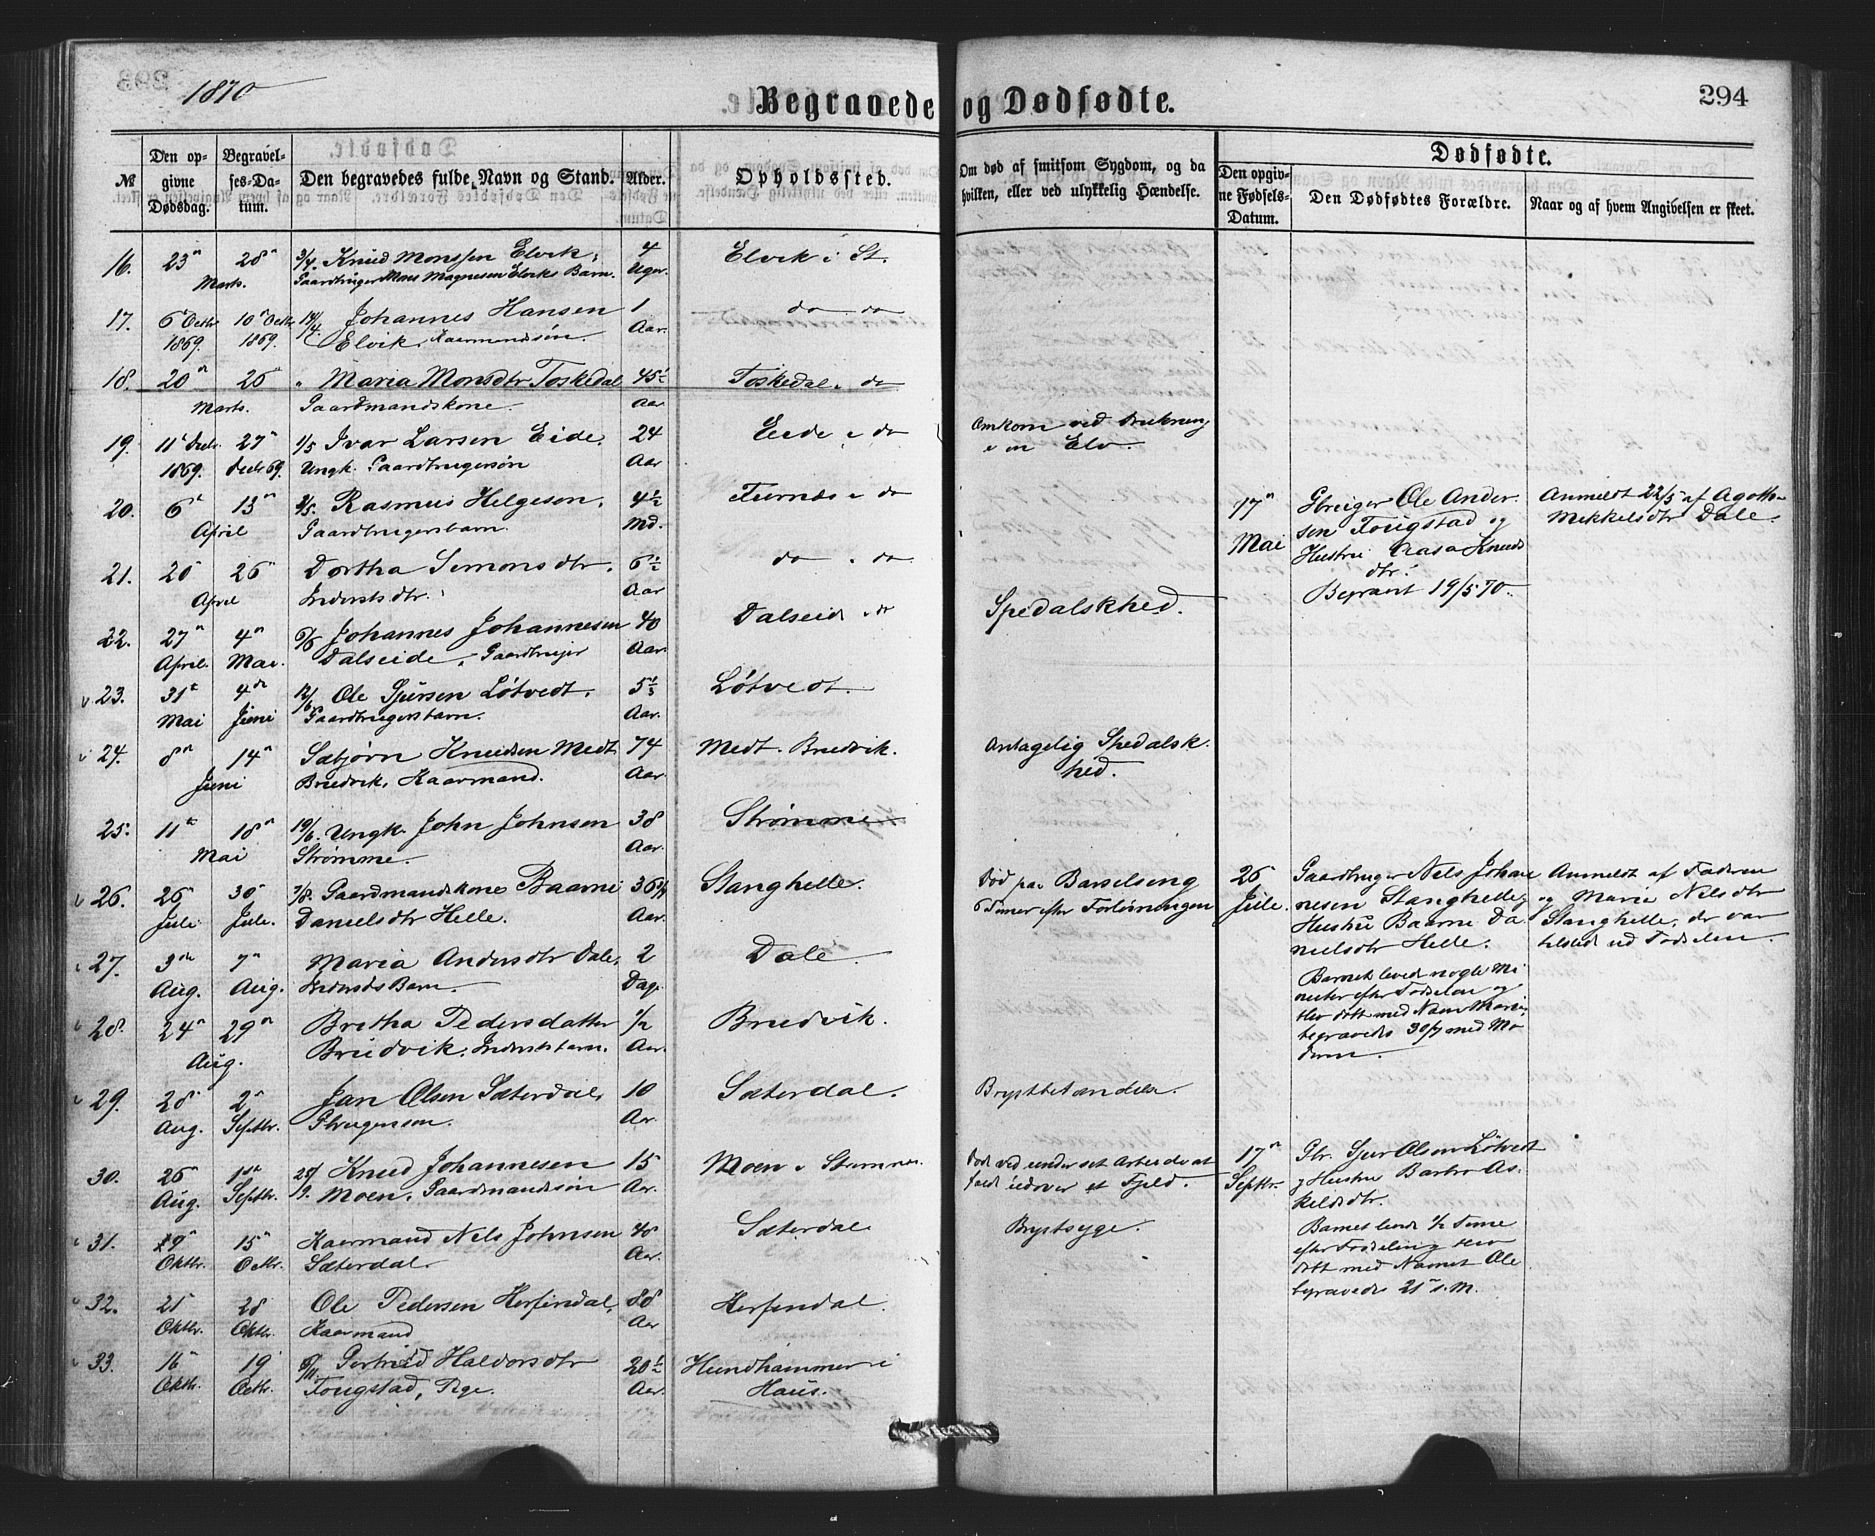 1870
Begravede og Dødfødte.
294
No.
Den opgivne Dødsdag.
Begravelses-Datum.
Den begravedes fulde Navn og Stand.
Alder.
Opholdssted.
Om død af smitsom Sygdom, og da hvilken, eller ved ulykkelig Hændelse.
Dødfødte.
Den opgivne Fødsels-Datum.
Den Dødfødtes Forældre.
Naar og af hvem Angivelsen er skeet.
16. 23 28 3/4 Knud Monssen Elvik, 4 Elvik i St.
Marts. Gaardbruger Mons Magnesen Elviks Barn. Uger
17. 6 Octbr 10 Octbr 14/4 Johannes Hansen 1 do do
1869. 1869. Elvik, Kaarmandssøn. Aar.
18. 20 26 " Maria Monsdtr Toskedal 45½ Toskedal i do
Marts. Gaardmandskone. Aar
19. 11 Decbr 27 1/5 Ivar Larsen Eide, 24 Eide i do Omkom ved Drukning
1869. Decbr 69. Ungk. Gaardbrugersøn Aar i en Elv.
20. 6 13 2/5. Rasmus Helgesen, 4½ Furnæs i do
April Gaardbrugersbarn. Md.
17 Mai
Gbruger Ole Andersen Fougstad og
Hustru Aasa Knudsdtr.
Begravet 19/5 70.
Anmeldt 22/5 af Agotha
Mikkelsdtr Dale.
21. 20 26 Dortha Simonsdtr, 6½ do i do
April Inderstsdtr. Aar
22. 27 4 6/6 Johannes Johannesen 40 Dalseid i do Spedalskhed.
April. Mai. Dalseide, Gaardbruger Aar.
23. 31 4de 12/6 Ole Sjursen Løtvedt, 5½ Løtvedt.
Mai Juni Gaardbrugersbarn. Aar.
24. 8 14 Sæbjørn Knudsen Medt 74 Medt. Bruvik. Antagelig Spedalsk-
Juni Bruvik, Kaarmand. Aar. hed.
25. 11 18 19/6. Ungk. John Johnsen 38 Strømme
Mai Strømme. Aar.
26. 26 30 7/8. Gaardmandskone Baarni 36 Stanghelle. Død paa Barselseng
Juli Jule. Danielsdtr Helle. Aar. 6 Timer efter Forløsningen
26 Jule.
Gaardbruger Nels Johannesen Stanghelle,
Hustru Baarne Danielsdtr Helle.
Barnet leved nogle Minuter efter Fødselen og
blev døbt med Navn
begravedes 30/7 med Moderen.
Anmeldt af Faderen
og Marie Nilsdtr
Stanghelle, der var
tilstede ved Fødselen.
27. 3die 7 Maria Andersdtr Dale, 2 Dale.
Aug. Aug. InderstsBarn. Dage
28. 24 29 Bretha Pedersdatter 1/2 Bruvik.
Aug. Bruvik, Inderstsbarn. Aar.
29. 28 2 Jan Olsen Sæterdal, 10 Sæterdal. Brystbetændelse.
Aug. Septbr. Gbrugersøn. Aar.
30. 26 1ste 25/9. Knud Johannesen 15 Moen i Stamnes. Død ved under sit Arbeide at
Aug. Septbr. Moen, Gaardmandssøn Aar. falde udover et Fjeld.
17 Septbr.
Gbr. Sjur Olsen Løtvedt
og Hustru Barbro Askeldsdtr.
Barnet levede ½ Time
efter Fødselen, blev
døbt med Navnet Ole
begravedes 21 s. M.
31. 9 15 Kaarmand Nels Johnsen 48 Sæterdal Brystsyge.
Oktbr. Octbr. Sæterdal. Aar.
32. 21 28 Ole Pedersen Herfindal, 88 Herfindal.
Oktbr. Oktbr. Kaarmand Aar
33. 16 19 6/11. Gertrud Haldorsdtr 20½ Hundhammer i
Oktbr. Octbr. Fougstad, Pige. Aar. Haus.